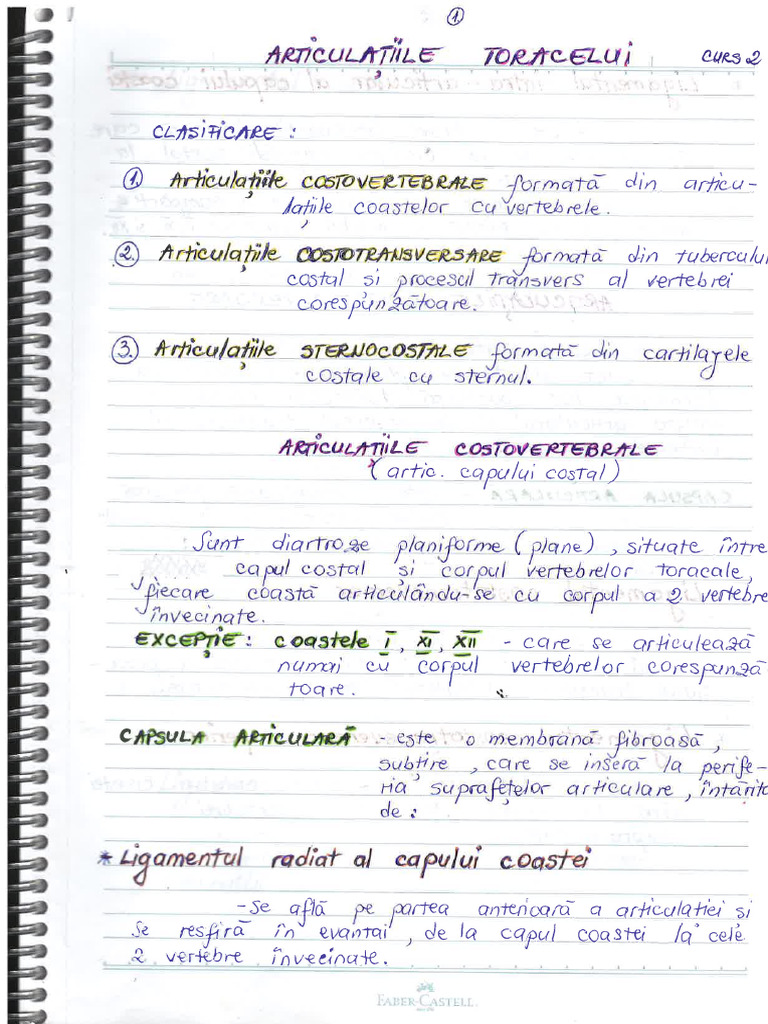 1.
ARTICULAȚIILE TORACELUI CURS 2
CLASIFICARE :
1. Articulațiile COSTOVERTEBRALE formată din articu-
lațiile coastelor cu vertebrele.
2. Articulațiile COSTOTRANSVERSARE formată din tuberculul
costal si procesul transvers al vertebrei
corespunzătoare.
3. Articulațiile STERNOCOSTALE formată din cartilagele
costale cu sternul.
ARTICULAȚIILE COSTOVERTEBRALE
(artic. capului costal)
Sunt diartroze planiforme (plane), situate între
capul costal și corpul vertebrelor toracale,
fiecare coastă articulându-se cu corpul a 2 vertebre
învecinate.
EXCEPȚIE : coastele I, XI, XII - care se articulează
numai cu corpul vertebrelor corespunză
toare.
CAPSULA ARTICULARĂ - este o membrană fibroasă,
subțire, care se inseră la perife-
ria suprafețelor articulare, întărită
de :
* Ligamentul radiat al capului coastei
- Se află pe partea anterioară a articulatiei si
se resfiră în evantai, de la capul coastei la cele
2 vertebre învecinate.
FABER-CASTELL